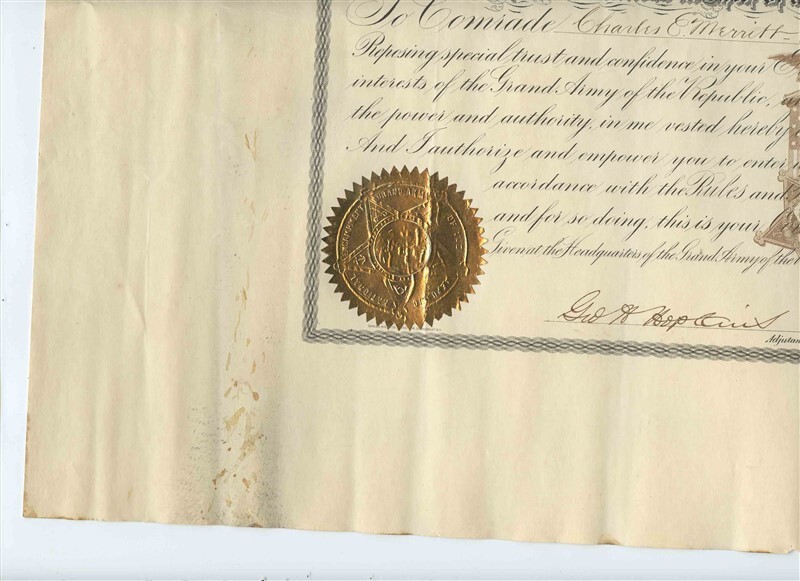 To Comrade Charles E. Merritt
Reposing special trust and confidence in your
interests of the Grand Army of the Republic,
the power and authority, in me vested hereby
And I authorize and empower you to enter
accordance with the Rules and
and for so doing, this is your
Given at the Headquarters of the Grand Army of the
Geo H Hopkins
Adjutan
GRAND ARMY OF THE
NATIONAL ENCAMPMENT